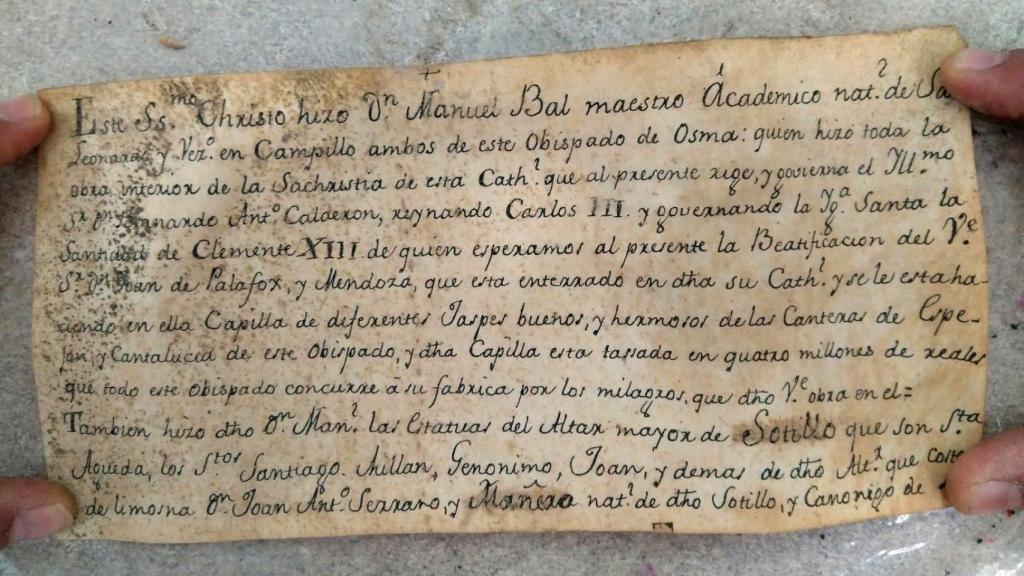 Este Ss.mo Christo hizo Dn Manuel Bal maestro Academico nat.l de Sn
Leonardo y Vez.o en Campillo ambos de este Obispado de Osma: quien hizo toda la
obra interior de la Sachristia de esta Cath.l que al presente rige, y govierna el Yll.mo
Sr Dn Bernardo Ant.o Calderon, reynando Carlos III. y governando la Yg.a Santa la
Santidad de Clemente XIII de quien esperamos al presente la Beatificacion del V.e
Sr Dn Joan de Palafox, y Mendoza, que esta enterrado en dha su Cath.l y se le esta ha-
ciendo en ella Capilla de diferentes Jaspes buenos, y hermosos de las Canteras de Espe-
jon y Cantalucia de este Obispado, y dha Capilla esta tassada en quatro millones de reales
que todo este Obispado concurre a su fabrica por los milagros, que dho V.e obra en el=
Tambien hizo dho Dn Man.l las Estatuas del Altar mayor de Sotillo que son S.ta
Agueda, los S.tos Santiago. Millan, Geronimo, Joan, y demas de dho Alt.r que costeo
de limosna Dn Joan Ant.o Serrano, y Mañero nat.l de dho Sotillo, y Canonigo de